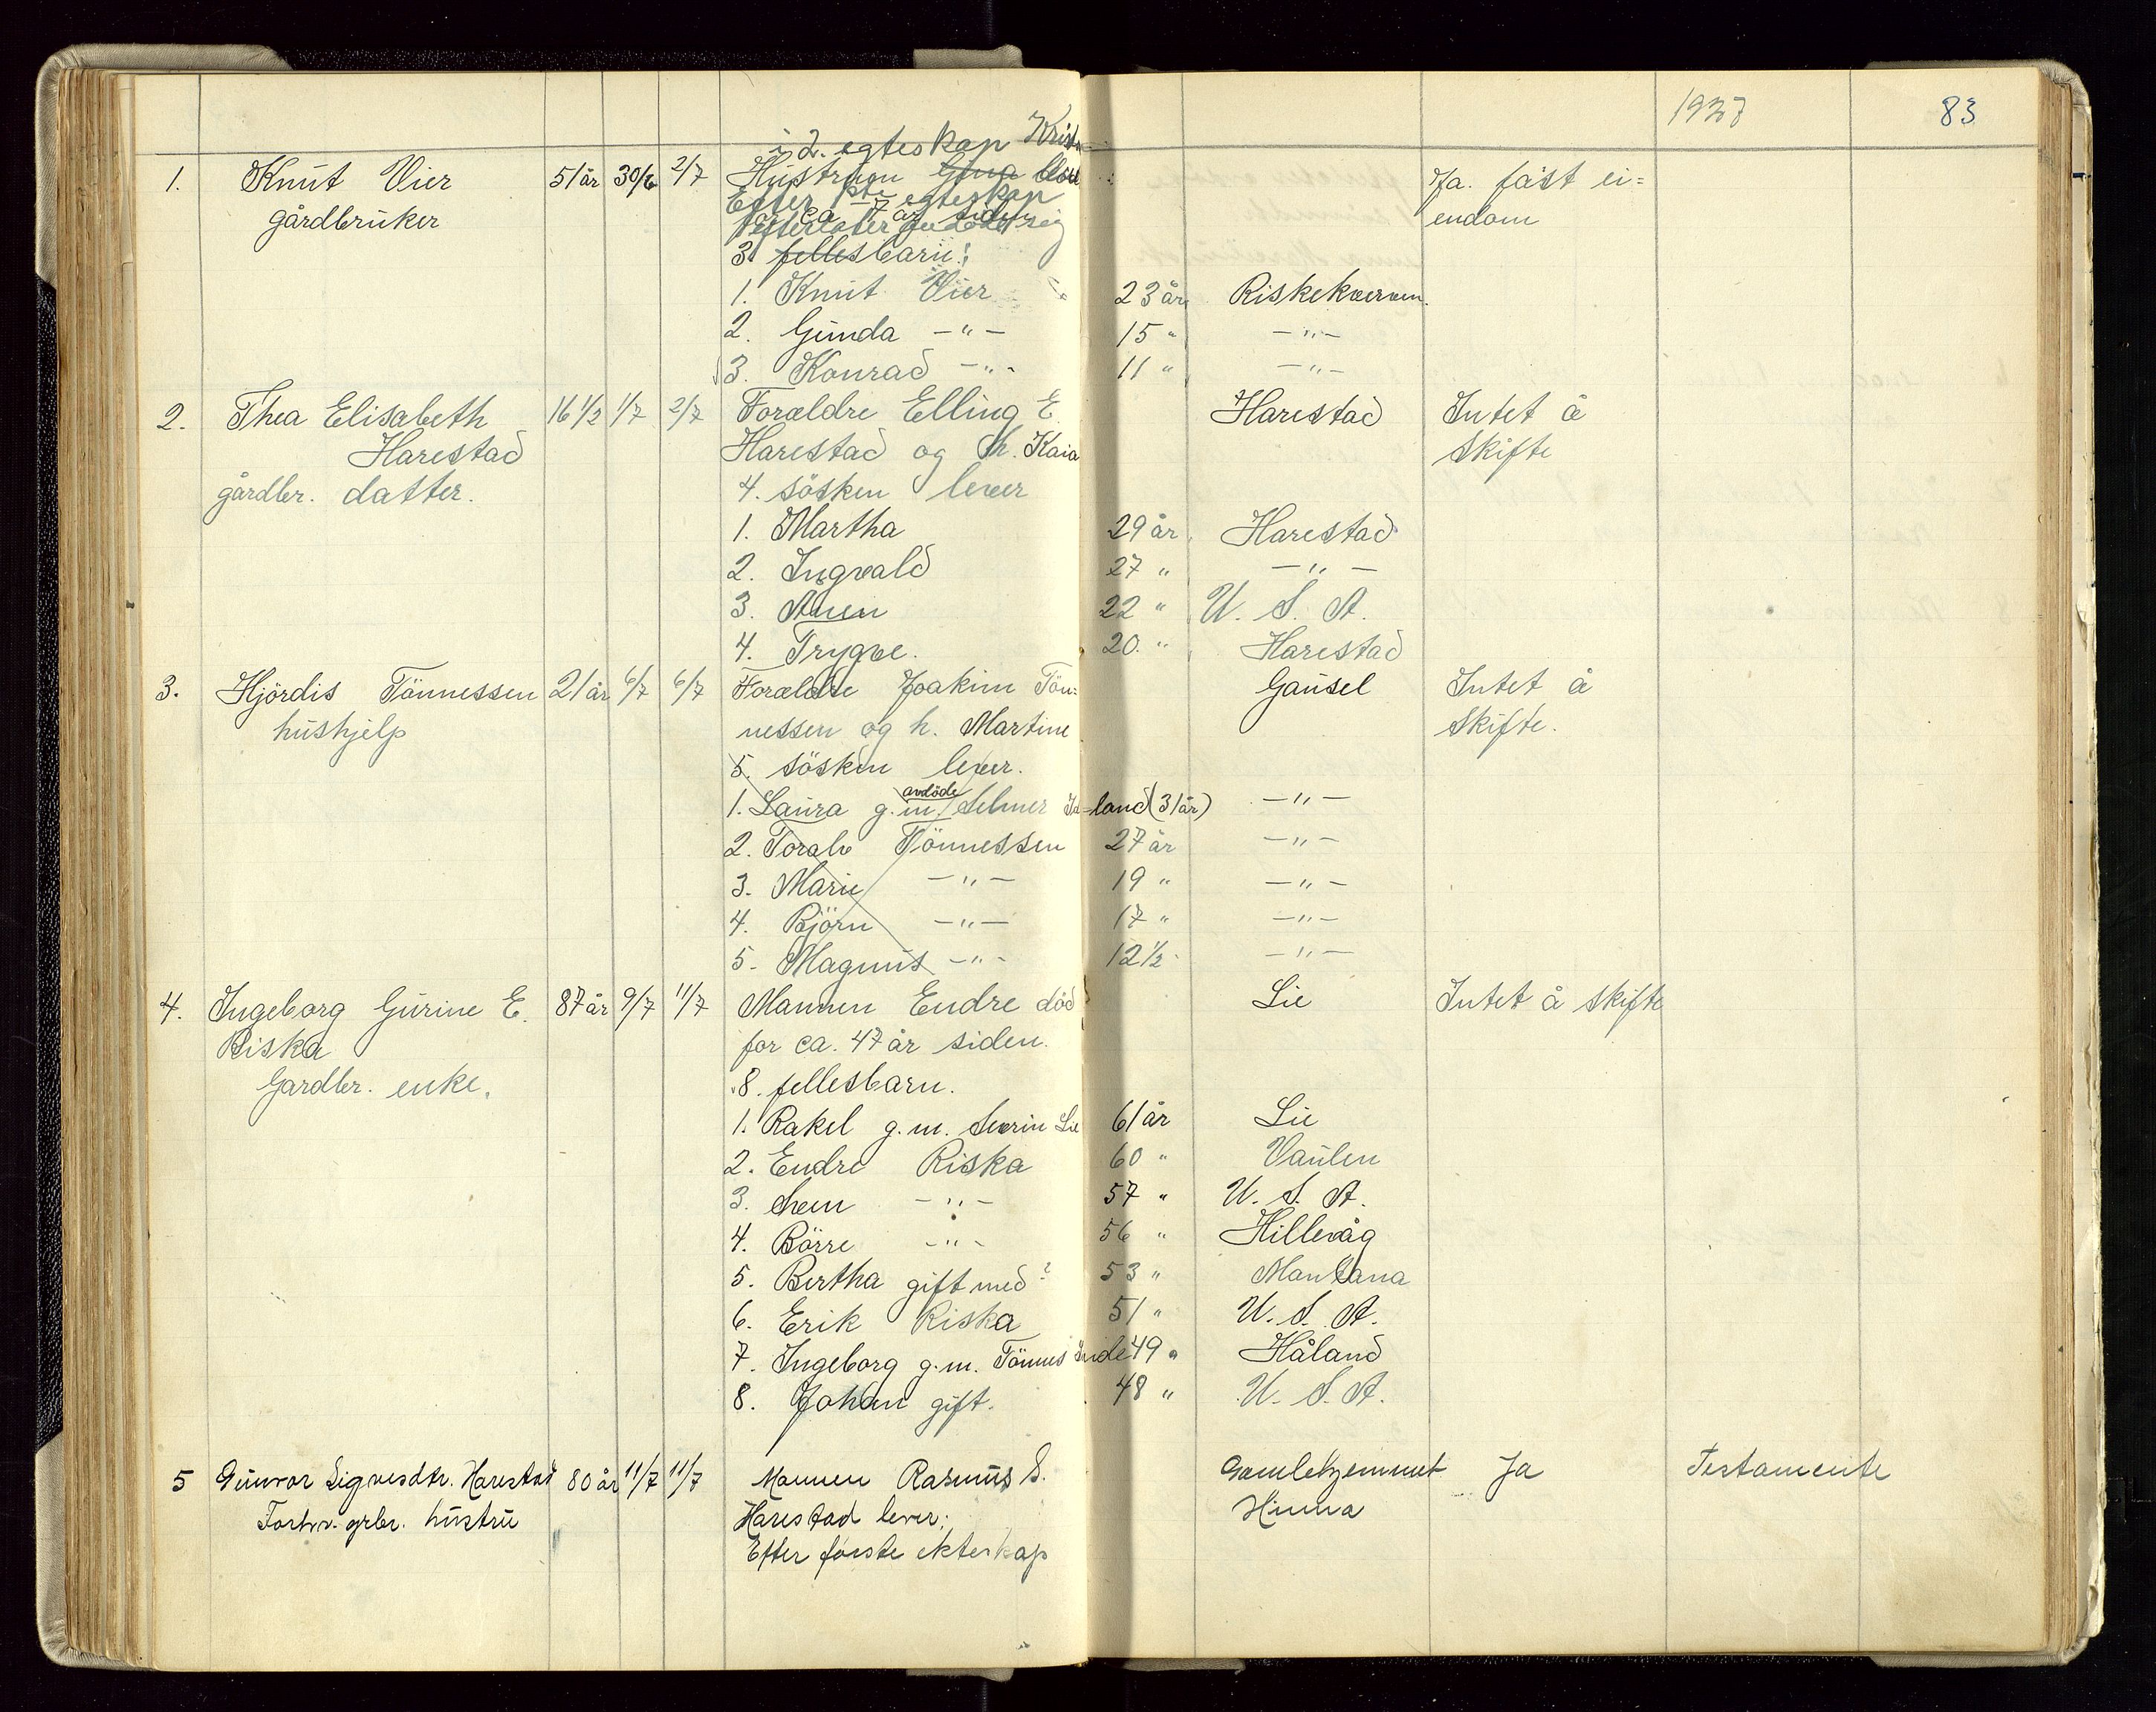 1937 83
i 2. egteskap Krist
1. Knut Vier 51 år 30/6 2/7 Hustruen Ja. fast ei=
gårdbruker Efter 1ste egteskap endom
for ca 7 år siden
efterlater sig
3 fellesbarn:
1. Knut Vier 23 år Riskekverven
2. Gunda -"- 15 " -"-
3. Konrad -"- 11 " -"-
2. Thea Elisabeth 16 1/2 1/7 2/7 Forældre Elling E Harestad Intet å
Harestad Harestad og h. Kaia Skifte
gårdbr. datter. 4. søsken lever
1. Martha 29 år Harestad
2. Ingvald 27 " -"-
3. 22 " U. S. A.
4. Trygve. 20. " Harestad
3. Hjördis Tönnessen 21 år 6/7 6/7 Forældre Joakim Tön= Gausel Intet å
hushjelp nessen og h. Martine Skifte.
5. sösken lever.
avdöde
1. Laura g.m. Selmer -land (31 år) -"-
2. Toralv Tönnessen 27 år -"-
3. Marie -"- 19 " -"-
4. Björn -"- 17 " -"-
5. Magnus -"- 12 1/2 -"-
4. Ingeborg Gurine E. 87 år 9/7 11/7 Mannen Endre död Lie Intet å skifte
Riska for ca. 47 år siden.
Gardbr. enke. 8. fellesbarn.
1. Rakel g.m. Sverin Lie 61 år Lie
2. Endre Riska 60 " Vaulen
3. Sven -"- 57 " U. S. A.
4. Börre -"- 56 " Hillevåg
5. Bertha gift med? 53 " Montana
6. Erik Riska 51 " U. S. A.
7. Ingeborg g.m. Tönnes 49 " Håland
8. Johan gift. 48 " U. S. A.
5 Gunvor Sigvesdtr. Harestad 80 år 11/7 11/7 Mannen Rasmus S. Gamlehjemmet Ja Testamente
Forhv. grbr. hustru Harestad lever; Hinna
Efter første ekteskap